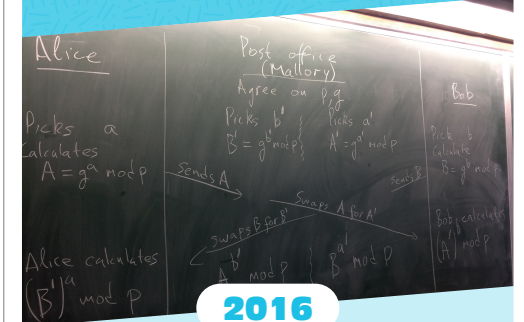 Alice
Picks a
Calculates
A = g^a mod p
Alice calculates
(B')^a mod p
Post office
(Mallory)
Agree on p,g
Picks b' } Picks a'
B' = g^b' mod p } A' = g^a' mod p
Sends A
Sends B
Swaps A for A'
Swaps B for B'
A^b' mod p } B^a' mod p
Bob
Picks b
Calculate
B = g^b mod p
Bob calculates
(A')^b mod p
2016